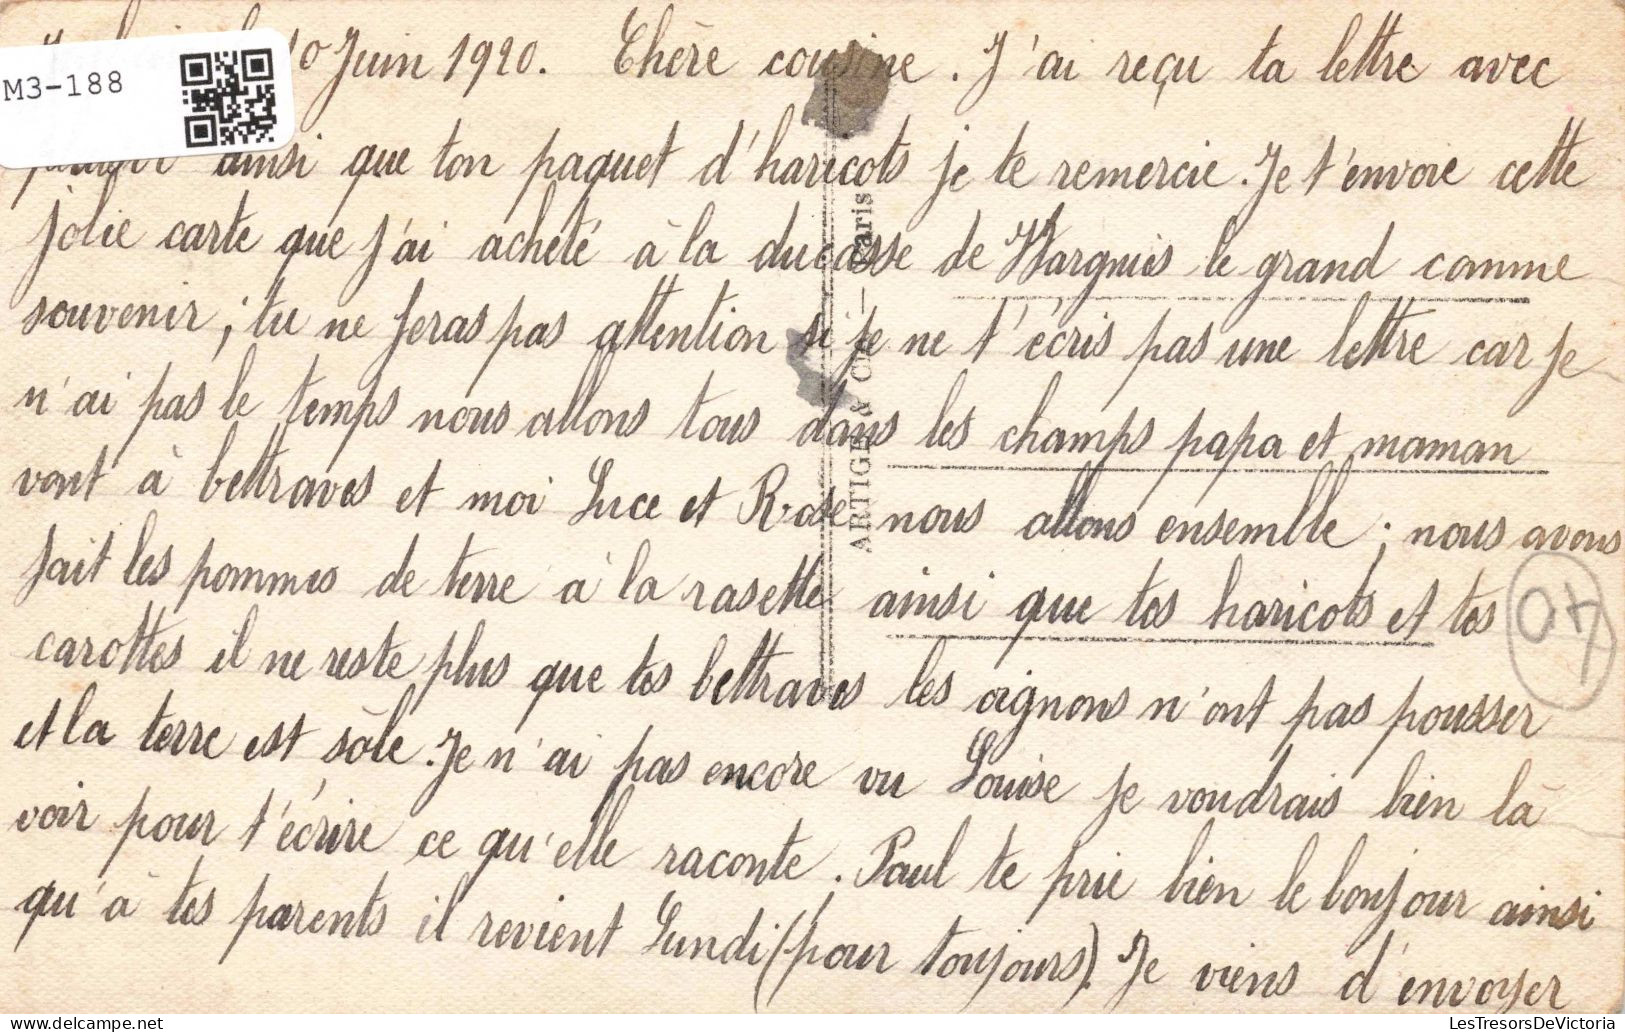 10 Juin 1920. Chère cousine. J'ai reçu ta lettre avec
M3-188
ainsi que ton paquet d'haricots je te remercie. Je t'envoie cette
jolie carte que j'ai acheté à la ducasse de Wargnies le grand comme
souvenir; tu ne feras pas attention si je ne t'écris pas une lettre car je
n'ai pas le temps nous allons tous dans les champs papa et maman
vont à bettraves et moi Luce et Rose nous allons ensemble; nous avons
fait les pommes de terre à la rasette ainsi que tes haricots et tes
carottes il ne reste plus que tes bettraves les oignons n'ont pas pousser
et la terre est sâle. Je n'ai pas encore vu Louise je voudrais bien là
voir pour t'écrire ce qu'elle raconte. Paul te prie bien le bonjour ainsi
qu'à tes parents il revient Lundi (pour toujours). Je viens d'envoyer
ARTIGE & Cie — Paris
LesTresorsDeVictoria
delcampe.net